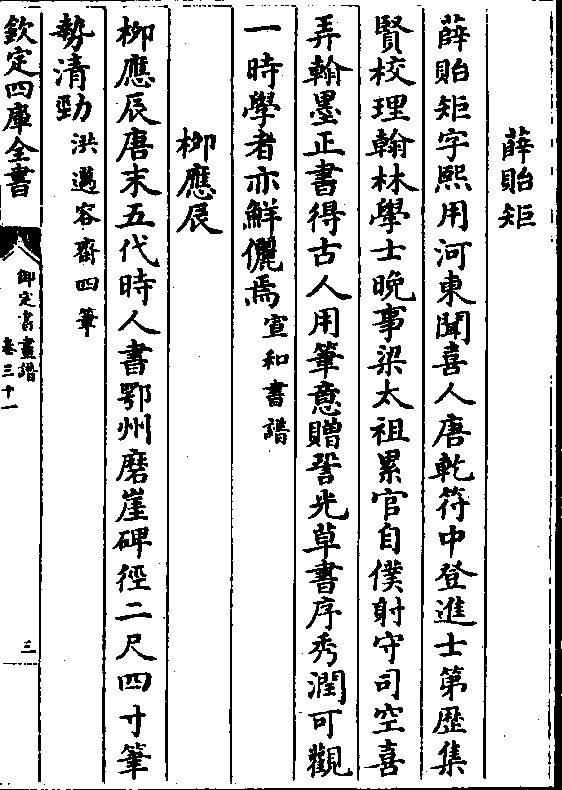 薛貽矩
薛貽矩字熙用河東聞喜人唐乾符中登進士第歴集
賢校理翰林學士晚事梁太祖累官自僕射守司空喜
弄翰墨正書得古人用筆意贈䛒光草書序秀潤可觀
一時學者亦鮮儷焉宣和書譜
栁應辰
栁應辰唐末五代時人書鄂州磨崖碑徑二尺四寸筆
勢清勁洪邁容齋四筆
欽定四庫全書 御定書畫譜 卷三十一 三